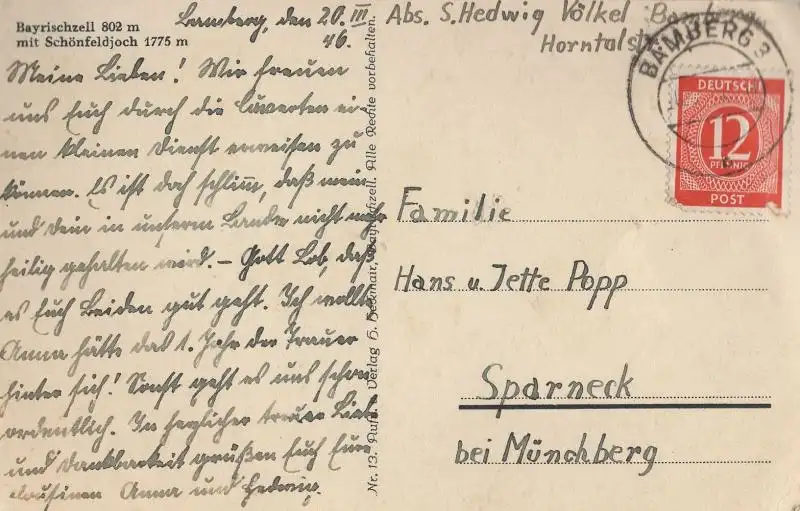 Bayrischzell 802 m
mit Schönfeldjoch 1775 m
Bamberg, den 20. III
46.
Meine Lieben! Wir freuen
uns Euch durch die Cuverten ei-
nen kleinen Dienst erweisen zu
können. Es ist doch schlimm, daß mein
und dein in unserm Lande nicht mehr
heilig gehalten wird. – Gott Lob, daß
es Euch Beiden gut geht. Ich wollte
Anna hätte das 1. Jahr der Trauer
hinter sich! Sonst geht es uns schon
ordentlich. In herzlicher treuer Liebe
und Dankbarkeit grüßen Euch Eure
Cousinen Anna und Hedwig.
Nr. 13. Verlag H. Bayrischzell. Alle Rechte vorbehalten.
Abs. S. Hedwig Völkel Bamberg
Horntalstr
BAMBERG 3
DEUTSCHE
12
PFENNIG
POST
Familie
Hans u. Jette Popp
Sparneck
bei Münchberg